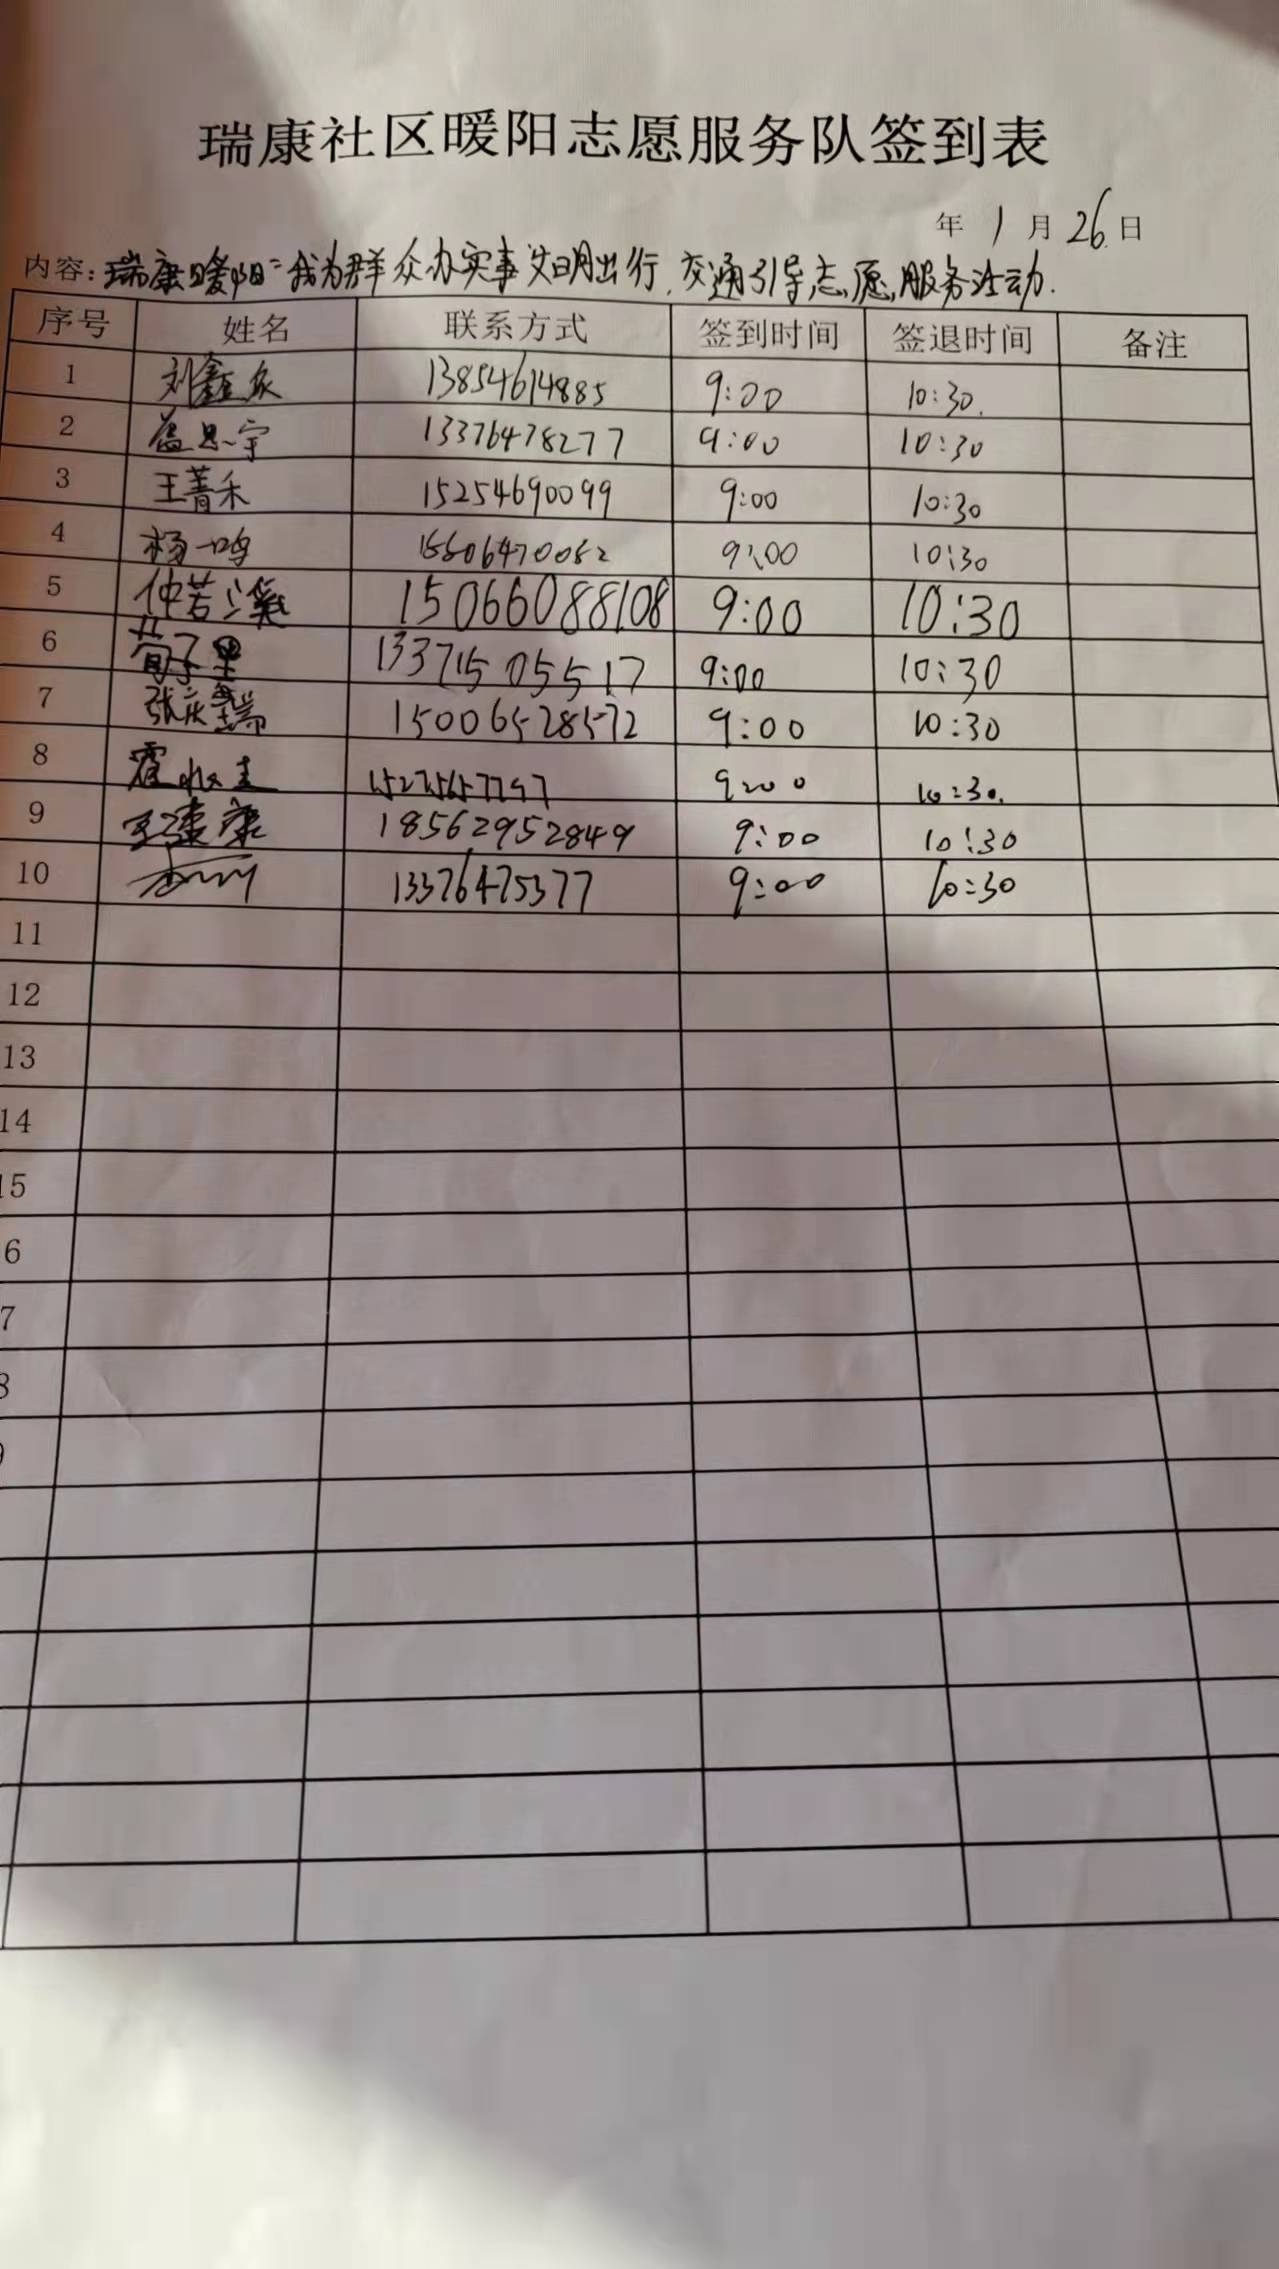 瑞康社区暖阳志愿服务队签到表
年 1 月 26 日
内容：瑞康暖阳"我为群众办实事文明出行，交通引导志愿服务活动.
序号 姓名 联系方式 签到时间 签退时间 备注
1 刘鑫众 13854614885 9:00 10:30.
2 思宇 13376478277 9:00 10:30
3 王菁禾 15254690099 9:00 10:30
4 杨一鸣 9:00 10:30
5 仲若溪 15066088108 9:00 10:30
6 荀子里 13371505517 9:00 10:30
7 张庆瑞 15006528572 9:00 10:30
8 霍 9:00 10:30.
9 王 康 18562952849 9:00 10:30
10 13376475377 9:00 10:30
11
12
13
14
15
6
7
8